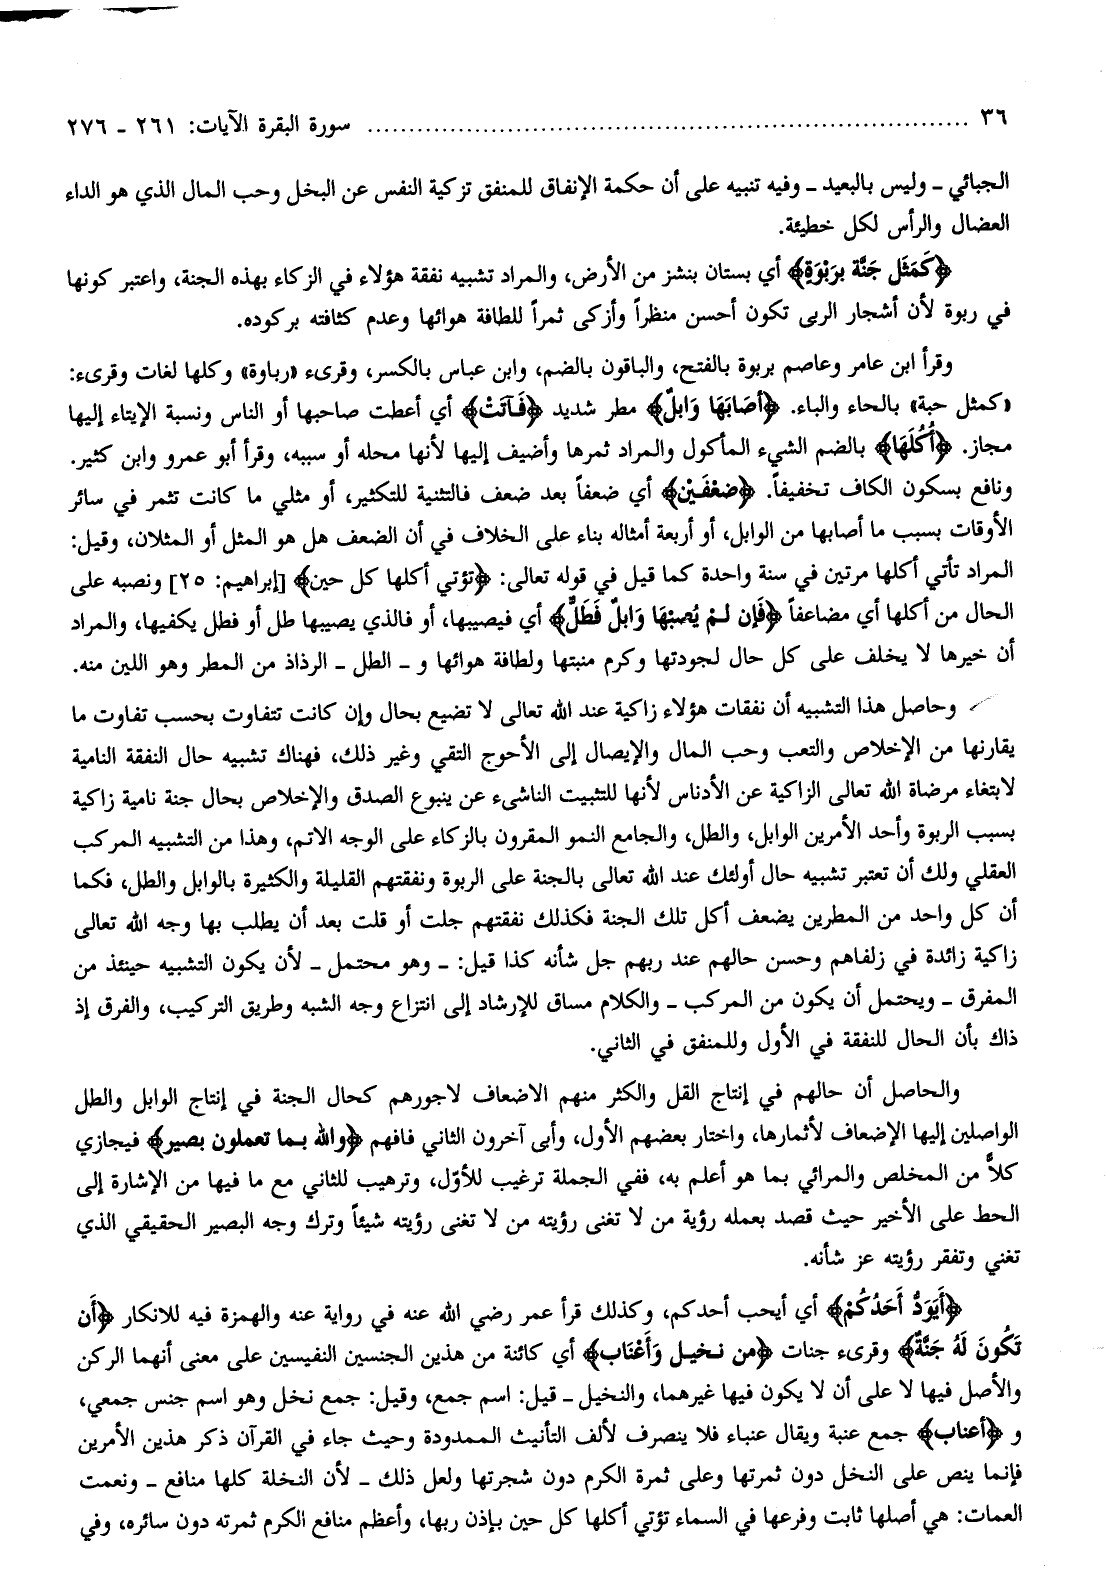 ٣٦ ........................................................................ سورة البقرة الآيات: ٢٦١ ـ ٢٧٦
الجبائي ـ وليس بالبعيد ـ وفيه تنبيه على أن حكمة الإنفاق للمنفق تزكية النفس عن البخل وحب المال الذي هو الداء
العضال والرأس لكل خطيئة.
﴿كَمَثَل جَنَّة بِرَبْوَةٍ﴾ أي بستان بنشز من الأرض، والمراد تشبيه نفقة هؤلاء في الزكاء بهذه الجنة، واعتبر كونها
في ربوة لأن أشجار الربى تكون أحسن منظراً وأزكى ثمراً للطافة هوائها وعدم كثافته بركوده.
وقرأ ابن عامر وعاصم بربوة بالفتح، والباقون بالضم، وابن عباس بالكسر، وقرىء «رباوة» وكلها لغات وقرىء:
«كمثل حبة» بالحاء والباء. ﴿أَصَابَهَا وَابِلٌ﴾ مطر شديد ﴿فَآتَتْ﴾ أي أعطت صاحبها أو الناس ونسبة الإيتاء إليها
مجاز. ﴿أُكُلَهَا﴾ بالضم الشيء المأكول والمراد ثمرها وأضيف إليها لأنها محله أو سببه، وقرأ أبو عمرو وابن كثير.
ونافع بسكون الكاف تخفيفاً. ﴿ضِعْفَيْن﴾ أي ضعفاً بعد ضعف فالتثنية للتكثير، أو مثلي ما كانت تثمر في سائر
الأوقات بسبب ما أصابها من الوابل، أو أربعة أمثاله بناء على الخلاف في أن الضعف هل هو المثل أو المثلان، وقيل:
المراد تأتي أكلها مرتين في سنة واحدة كما قيل في قوله تعالى: ﴿تؤتي أكلها كل حين﴾ [إبراهيم: ٢٥] ونصبه على
الحال من أكلها أي مضاعفاً ﴿فَإِن لَمْ يُصِبْهَا وَابِلٌ فَطَلٌّ﴾ أي فيصيبها، أو فالذي يصيبها طل أو فطل يكفيها، والمراد
أن خيرها لا يخلف على كل حال لجودتها وكرم منبتها ولطافة هوائها و ـ الطل ـ الرذاذ من المطر وهو اللين منه.
وحاصل هذا التشبيه أن نفقات هؤلاء زاكية عند الله تعالى لا تضيع بحال وإن كانت تتفاوت بحسب تفاوت ما
يقارنها من الإخلاص والتعب وحب المال والإيصال إلى الأحوج التقي وغير ذلك، فهناك تشبيه حال النفقة النامية
لابتغاء مرضاة الله تعالى الزاكية عن الأدناس لأنها للتثبيت الناشىء عن ينبوع الصدق والإخلاص بحال جنة نامية زاكية
بسبب الربوة وأحد الأمرين الوابل، والطل، والجامع النمو المقرون بالزكاء على الوجه الاتم، وهذا من التشبيه المركب
العقلي ولك أن تعتبر تشبيه حال أولئك عند الله تعالى بالجنة على الربوة ونفقتهم القليلة والكثيرة بالوابل والطل، فكما
أن كل واحد من المطرين يضعف أكل تلك الجنة فكذلك نفقتهم جلت أو قلت بعد أن يطلب بها وجه الله تعالى
زاكية زائدة في زلفاهم وحسن حالهم عند ربهم جل شأنه كذا قيل: ـ وهو محتمل ـ لأن يكون التشبيه حينئذ من
المفرق ـ ويحتمل أن يكون من المركب ـ والكلام مساق للإرشاد إلى انتزاع وجه الشبه وطريق التركيب، والفرق إذ
ذاك بأن الحال للنفقة في الأول وللمنفق في الثاني.
والحاصل أن حالهم في إنتاج القل والكثر منهم الاضعاف لاجورهم كحال الجنة في إنتاج الوابل والطل
الواصلين إليها الإضعاف لأثمارها، واختار بعضهم الأول، وأبى آخرون الثاني فافهم ﴿والله بـما تعملون بصير﴾ فيجازي
كلاًّ من المخلص والمرائي بما هو أعلم به، ففي الجملة ترغيب للأوّل، وترهيب للثاني مع ما فيها من الإشارة إلى
الحط على الأخير حيث قصد بعمله رؤية من لا تغنى رؤيته من لا تغنى رؤيته شيئاً وترك وجه البصير الحقيقي الذي
تغني وتفقر رؤيته عز شأنه.
﴿أَيَوَدُّ أَحَدُكُمْ﴾ أي أيحب أحدكم، وكذلك قرأ عمر رضي الله عنه في رواية عنه والهمزة فيه للانكار ﴿أَن
تَكُونَ لَهُ جَنَّةٌ﴾ وقرىء جنات ﴿من نخيل وَأَعْنَاب﴾ أي كائنة من هذين الجنسين النفيسين على معنى أنهما الركن
والأصل فيها لا على أن لا يكون فيها غيرهما، والنخيل ـ قيل: اسم جمع، وقيل: جمع نخل وهو اسم جنس جمعي،
و ﴿أعناب﴾ جمع عنبة ويقال عنباء فلا ينصرف لألف التأنيث الممدودة وحيث جاء في القرآن ذكر هذين الأمرين
فإنما ينص على النخل دون ثمرتها وعلى ثمرة الكرم دون شجرتها ولعل ذلك ـ لأن النخلة كلها منافع ـ ونعمت
العمات: هي أصلها ثابت وفرعها في السماء تؤتي أكلها كل حين بإذن ربها، وأعظم منافع الكرم ثمرته دون سائره، وفي